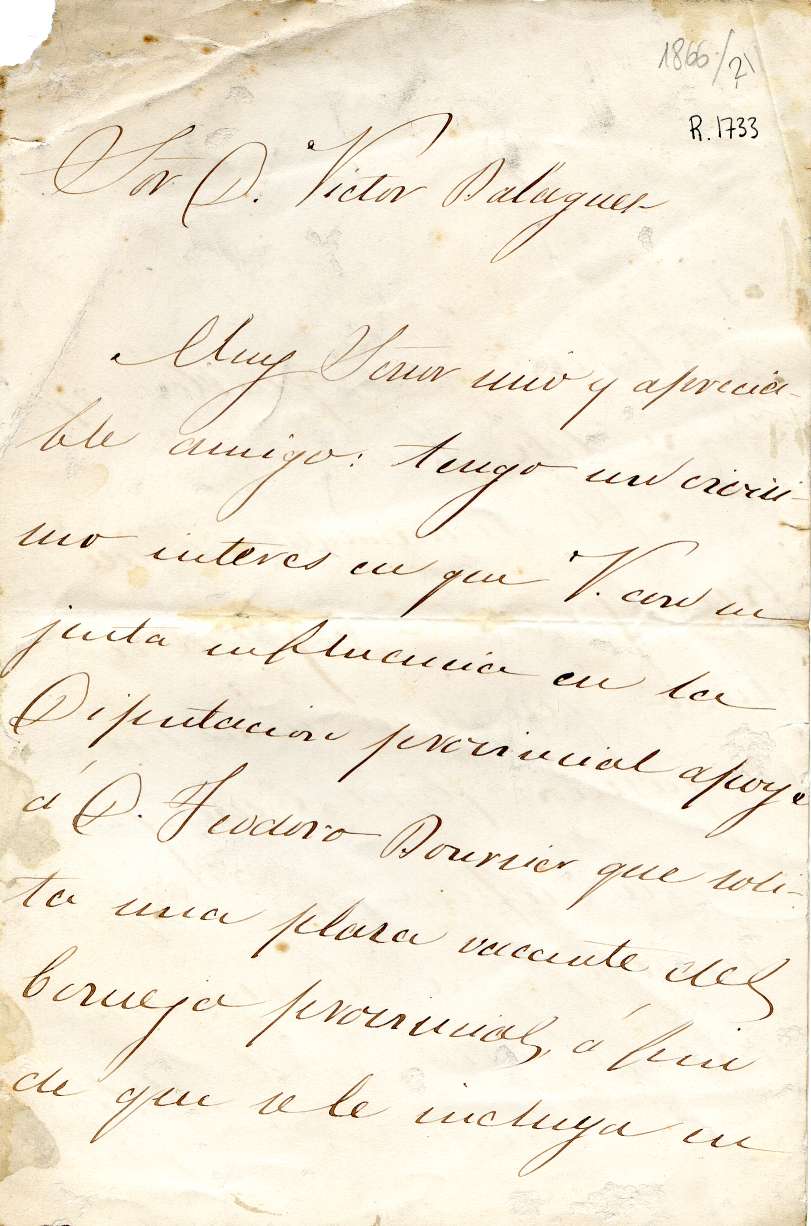 1866/21
R. 1733
Sor D. Victor Balaguer
Muy Señor mio y aprecia-
ble amigo: tengo un vivisi-
mo interes en que V. con su
justa influencia en la
Diputacion provincial apoye
á D. Teodoro que soli-
ta una plasa vacante del
Consejo provincial, á fin
de que se le incluya en